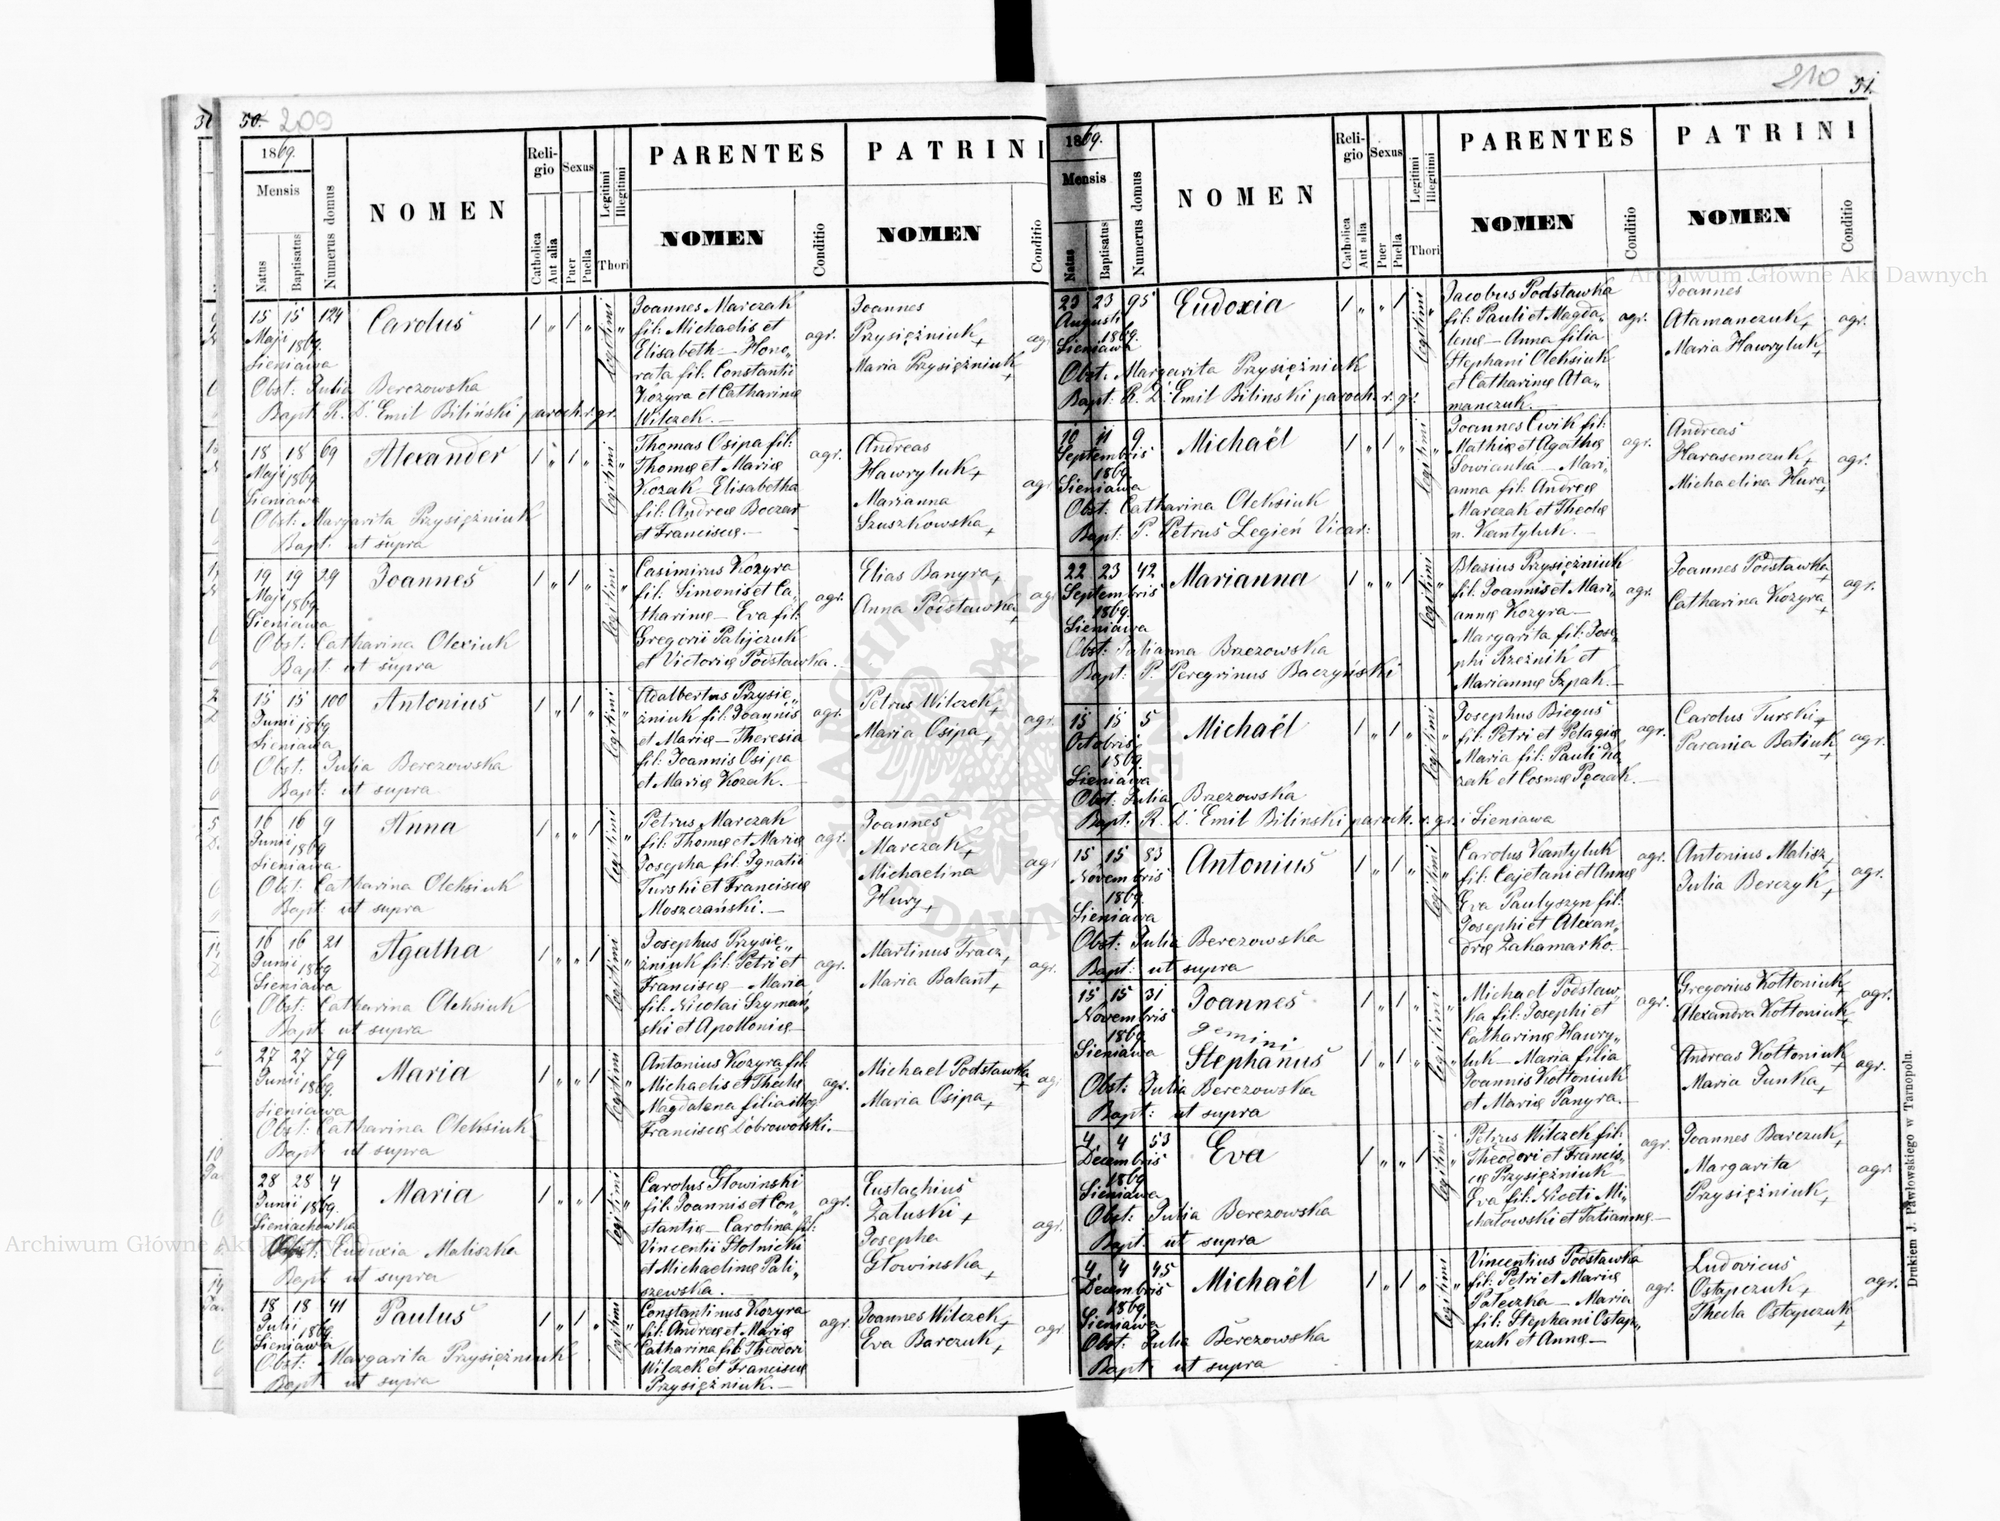 50. 209
1869.
Mensis
Natus
Baptisatus
Numerus domus
NOMEN
Religio
Catholica
Aut alia
Sexus
Puer
Puella
Legitimi
Illegitimi
Thori
PARENTES
NOMEN
Conditio
PATRINI
NOMEN
Conditio
15 15 124 Carolus 1 „ 1 „ legitimi „
Maji 1869.
Sieniawa
Obst: Julia Berezowska
Bapt: R. D. Emil Biliński paroch. r. gr.
Joannes Marczak
fil: Michaelis et
Elisabeth – Hono„
rata fil: Constantii
Kozyra et Catharinę
Wilczek. –
agr.
Joannes
Przysiężniuk +
Maria Przysiężniuk +
agr.
18 18 69 Alexander 1 „ 1 „ legitimi „
Maji 1869
Sieniawa
Obst: Margarita Przysiężniuk
Bapt: ut supra
Thomas Osipa fil:
Thomę et Marię
Kozak – Elisabetha
fil: Andreę Boczar
et Franciscę. –
agr.
Andreas
Hawryluk +
Marianna
Szuszkowska +
agr.
19 19 29 Joannes 1 „ 1 „ legitimi „
Maji 1869.
Sieniawa
Obst: Catharina Olexiuk
Bapt: ut supra
Casimirus Kozyra
fil: Simonis et Ca„
tharinę – Eva fil:
Gregorii Palijczuk
et Victorię Podstawka.
agr.
Elias Banyra +
Anna Podstawka +
agr.
15 15 100 Antonius 1 „ 1 „ legitimi „
Junii 1869
Sieniawa
Obst: Julia Berezowska
Bapt: ut supra
Adalbertus Przysię„
żniuk fil: Joannis
et Marię – Theresia
fil: Joannis Osipa
et Marię Kozak. –
agr.
Petrus Wilczek +
Maria Osipa +
agr.
16 16 9 Anna 1 „ „ 1 legitimi „
Junii 1869
Sieniawa
Obst: Catharina Oleksiuk
Bapt: ut supra
Petrus Marczak
fil: Thomę et Marię
Josepha fil: Ignatii
Turski et Franciscę
Moszczański. –
agr.
Joannes
Marczak +
Michaelina
Hury +
agr
16 16 21 Agatha 1 „ „ 1 legitimi „
Junii 1869
Sieniawa
Obst: Catharina Oleksiuk
Bapt: ut supra
Josephus Przysię„
żniuk fil: Petri et
Franciscę – Maria
fil: Nicolai Szymań„
ski et Apollonię –
agr.
Martinus Tracz +
Maria Balant +
agr.
27 27 79 Maria 1 „ „ 1 legitimi „
Junii 1869.
Sieniawa
Obst: Catharina Oleksiuk
Bapt: ut supra
Antonius Kozyra fil:
Michaelis et Theclę
Magdalena filia illeg.
Franciscę Dobrowolski. –
agr.
Michael Podstawka +
Maria Osipa +
agr.
28 28 4 Maria 1 „ „ 1 legitimi „
Junii 1869.
Sieniachówka
Obst: Eudoxia Maliszka
Bapt: ut supra
Carolus Głowinski
fil: Joannis et Con„
stantię – Carolina fil:
Vincentii Stolnicki
et Michaelinę Pali„
szewska. –
agr.
Eustachius
Załuski +
Josepha
Głowinska +
agr.
18 18 41 Paulus 1 „ 1 „ legitimi „
Julii 1869.
Sieniawa
Obst: Margarita Przysiężniuk
Bapt: ut supra
Constantinus Kozyra
fil: Andreę et Marię
Catharina fil: Theodori
Wilczek et Franciscę
Przysiężniuk. –
agr.
Joannes Wilczek +
Eva Barczuk +
agr.
210 51.
1869.
Mensis
Natus
Baptisatus
Numerus domus
NOMEN
Religio
Catholica
Aut alia
Sexus
Puer
Puella
Legitimi
Illegitimi
Thori
PARENTES
NOMEN
Conditio
PATRINI
NOMEN
Conditio
23 23 95 Eudoxia 1 „ „ 1 legitimi „
Augusti
1869.
Sieniawa
Obst: Margarita Przysiężniuk
Bapt: R. D. Emil Bilinski paroch. r. gr.
Jacobus Podstawka
fil: Pauli et Magda„
lenę – Anna filia
Stephani Oleksiuk
et Catharinę Ata„
manczuk. –
agr.
Joannes
Atamanczuk +
Maria Hawryluk +
agr.
10 11 9. Michaël 1 „ 1 „ legitimi „
Septembris
1869
Sieniawa
Obst: Catharina Oleksiuk
Bapt: P. Petrus Legień Vicar:
Joannes Cwik fil:
Mathię et Agathę
Sowianka – Mari„
anna fil: Andreę
Marczak et Theclę
n. Kantyluk. –
agr.
Andreas
Harasemczuk +
Michaelina Hura +
agr.
22 23 42 Marianna 1 „ „ 1 legitimi „
Septembris
1869
Sieniawa
Obst: Julianna Brzezowska
Bapt: P. Peregrinus Baczyński
Blasius Przysiężniuk
fil: Joannis et Mari„
annę Kozyra –
Margarita fil: Jose„
phi Rzeźnik et
Mariannę Szpak. –
agr.
Joannes Podstawka +
Catharina Kozyra +
agr.
15 15 5 Michaël 1 „ 1 „ legitimi „
Octobris
1869.
Sieniawa
Obst: Julia Brzezowska
Bapt: R. D. Emil Bilinski paroch. r. gr. i Sieniawa
Josephus Biegus
fil: Petri et Pelagię
Maria fil: Pauli Ko„
zak et Cosmę Pęczak. –
agr.
Carolus Turski +
Parania Batiuk +
agr.
15 15 83 Antonius 1 „ 1 „ legitimi „
Novembris
1869.
Sieniawa
Obst: Julia Berezowska
Bapt: ut supra
Carolus Kantyluk
fil: Cajetani et Annę
Eva Paulyszyn fil:
Josephi et Alexan„
drię Zahamarko. –
agr.
Antonius Malisz +
Julia Berczyk +
agr.
15 15 31 Joannes 1 „ 1 „ legitimi „
Novembris
1869. gemini
Sieniawa Stephanus 1 „ 1 „
Obst: Julia Berezowska
Bapt: ut supra
Michael Podstaw„
ka fil: Josephi et
Catharinę Hawry„
luk – Maria filia
Joannis Kołtoniuk
et Marię Panyra. –
agr.
Gregorius Kołtoniuk +
Alexandra Kołtoniuk +
agr.
Andreas Kołtoniuk +
Maria Junka +
agr.
4 4 53 Eva 1 „ „ 1 legitimi „
Decembris
1869
Sieniawa
Obst: Julia Berezowska
Bapt: ut supra
Petrus Wilczek fil:
Theodori et Francis„
cę Przysiężniuk –
Eva fil: Niceti Mi„
chałowski et Tatiannę –
agr.
Joannes Barczuk +
Margarita
Przysiężniuk +
agr.
4 4 45 Michaël 1 „ 1 „ legitimi „
Decembris
1869.
Sieniawa
Obst: Julia Berezowska
Bapt: ut supra
Vincentius Podstawka
fil: Petri et Marię
Pałeczka – Maria
fil: Stephani Ostap„
czuk et Annę –
agr.
Ludovicus
Ostapczuk +
Thecla Ostapczuk +
agr.
Drukiem J. Pawłowskiego w Tarnopolu.
Archiwum Główne Akt Dawnych
Archiwum Główne Akt Dawnych